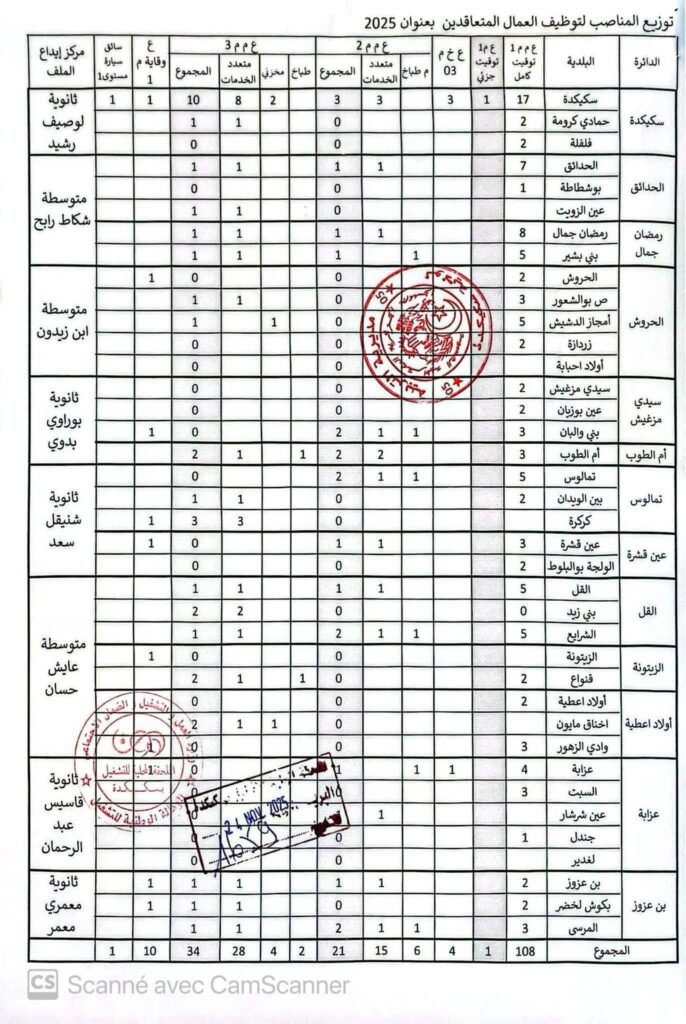 توزيع المناصب لتوظيف العمال المتعاقدين بعنوان 2025
الدائرة البلدية ع م م 1 توقيت كامل ع م1 توقيت جزئي ع خ م 03 ع م م 2 ع م م 3 ع وقاية م 1 سائق سيارة مستوى1 مركز إيداع الملف
م طباخ متعدد الخدمات المجموع طباخ مخزني متعدد الخدمات المجموع
سكيكدة سكيكدة 17 1 3 3 3 2 8 10 1 1 ثانوية لوصيف رشيد
حمادي كرومة 2 0 1 1
فلفلة 2 0 0
الحدائق الحدائق 7 1 1 1 1 متوسطة شكاط رابح
بوشطاطة 1 0 0
عين الزويت 0 1 1
رمضان جمال رمضان جمال 8 1 1 1 1
بني بشير 5 1 1 1 1
الحروش الحروش 2 0 1 متوسطة ابن زيدون
ص بوالشعور 3 1 1
أمجاز الدشيش 5 0 1 1
زردازة 2 0 0
أولاد احبابة 0 0
سيدي مزغيش سيدي مزغيش 2 0 0 ثانوية بوراوي بدوي
عين بوزيان 2 0 0
بني والبان 3 1 1 2 0 1
أم الطوب أم الطوب 3 2 2 1 1 2
تمالوس تمالوس 5 1 1 2 0 ثانوية شنيقل سعد
بين الويدان 2 0 1 1
كركرة 0 3 3 1
عين قشرة عين قشرة 3 1 1 0 1
الولجة بوالبلوط 2 0 0
القل القل 5 1 1 1 1 متوسطة عايش حسان
بني زيد 0 0 2 2
الشرايع 5 1 1 2 1 1
الزيتونة الزيتونة 0 0 1
قنواع 2 0 1 1 2
أولاد اعطية أولاد اعطية 2 0 0
اخناق مايون 0 1 1 2
وادي الزهور 3 0 0 1
عزابة عزابة 4 1 1 1 0 1 ثانوية قاسيس عبد الرحمان
السبت 3 0
عين شرشار 1
جندل 1 0
لغدير 0 0
بن عزوز بن عزوز 2 1 1 1 1 1 ثانوية معمري معمر
بكوش لخضر 2 0 1 1 1
المرسى 3 1 1 2 1 1
المجموع 108 1 4 6 15 21 2 4 28 34 10 1
24 NOV. 2025
1629
CS Scanné avec CamScanner